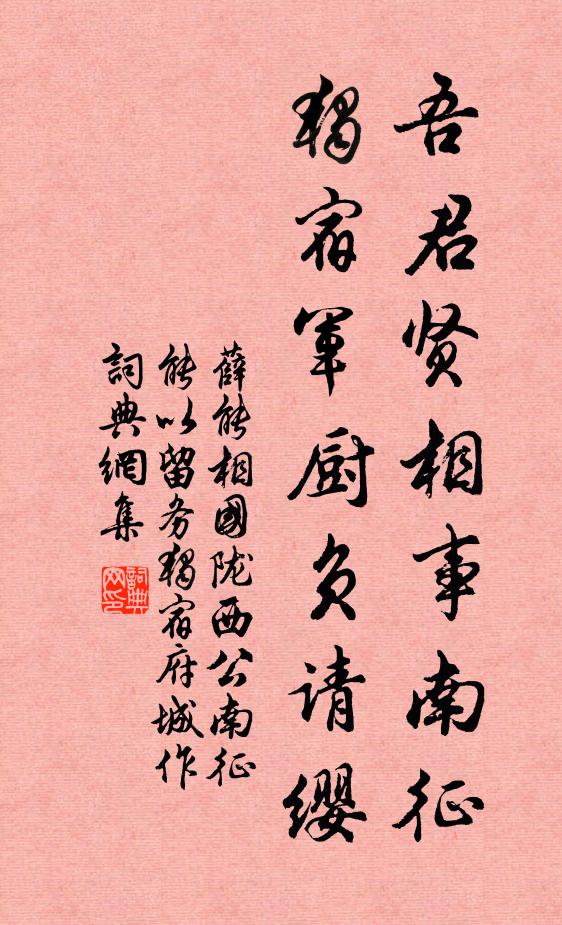 吾君贤相事南征
独宿军厨负请缨
薛能相國陇西公南征
能以留务独宿府城作
詞典網集
詞典网印